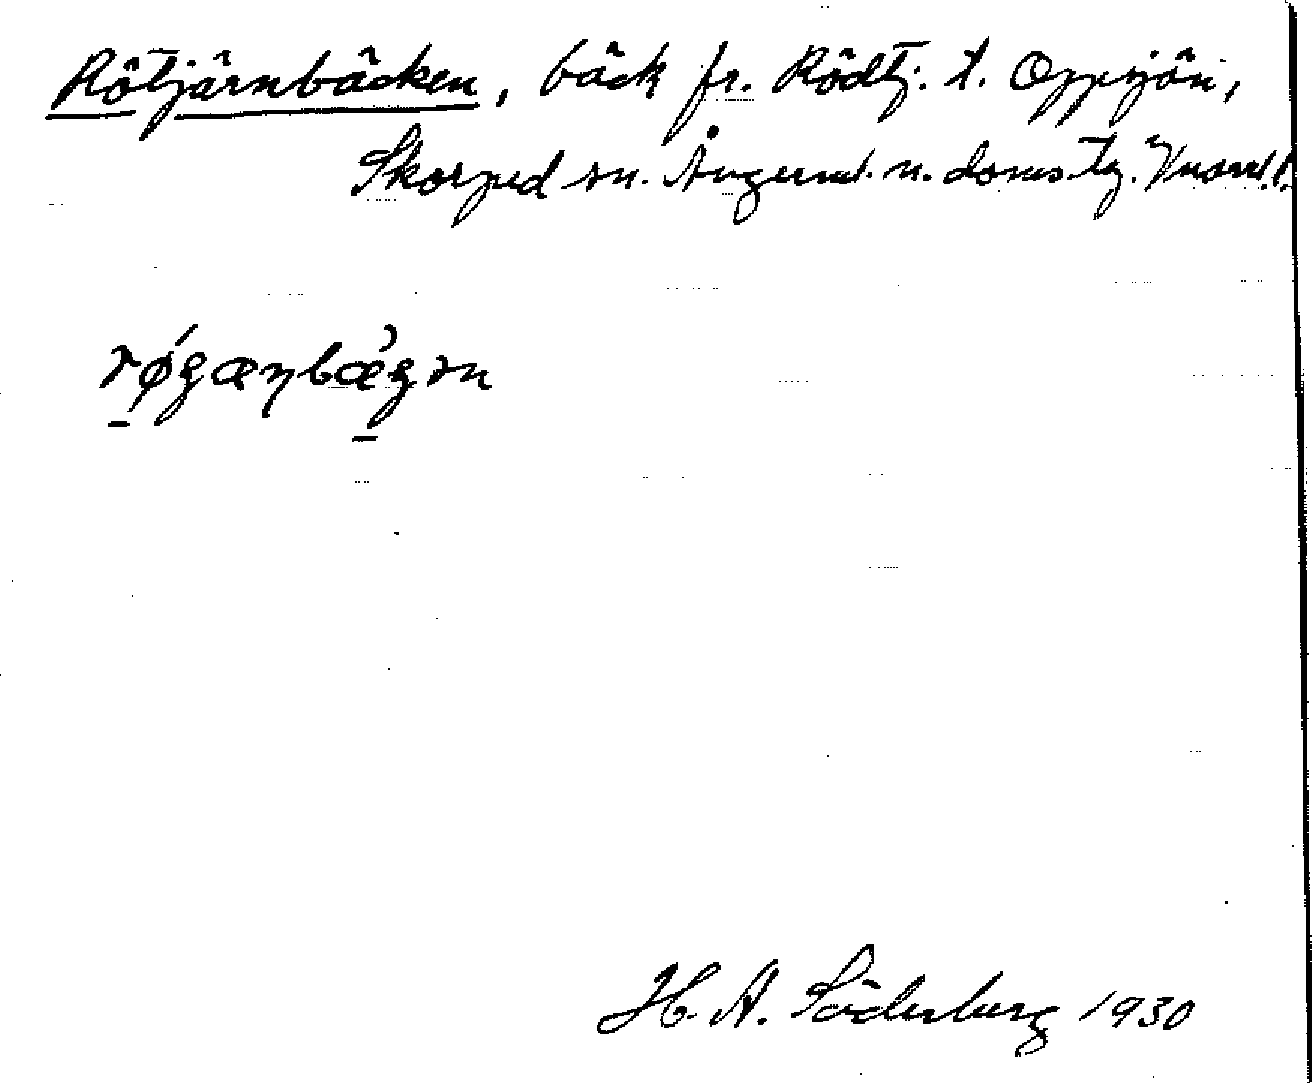 Rötjärnbäcken, bäck fr. Rödtj. t. Oppsjön,
Skorped sn. Ångerml. n. doms tg. Vnorrl. l.
røgæŋbægən
H. A. Söderberg 1930